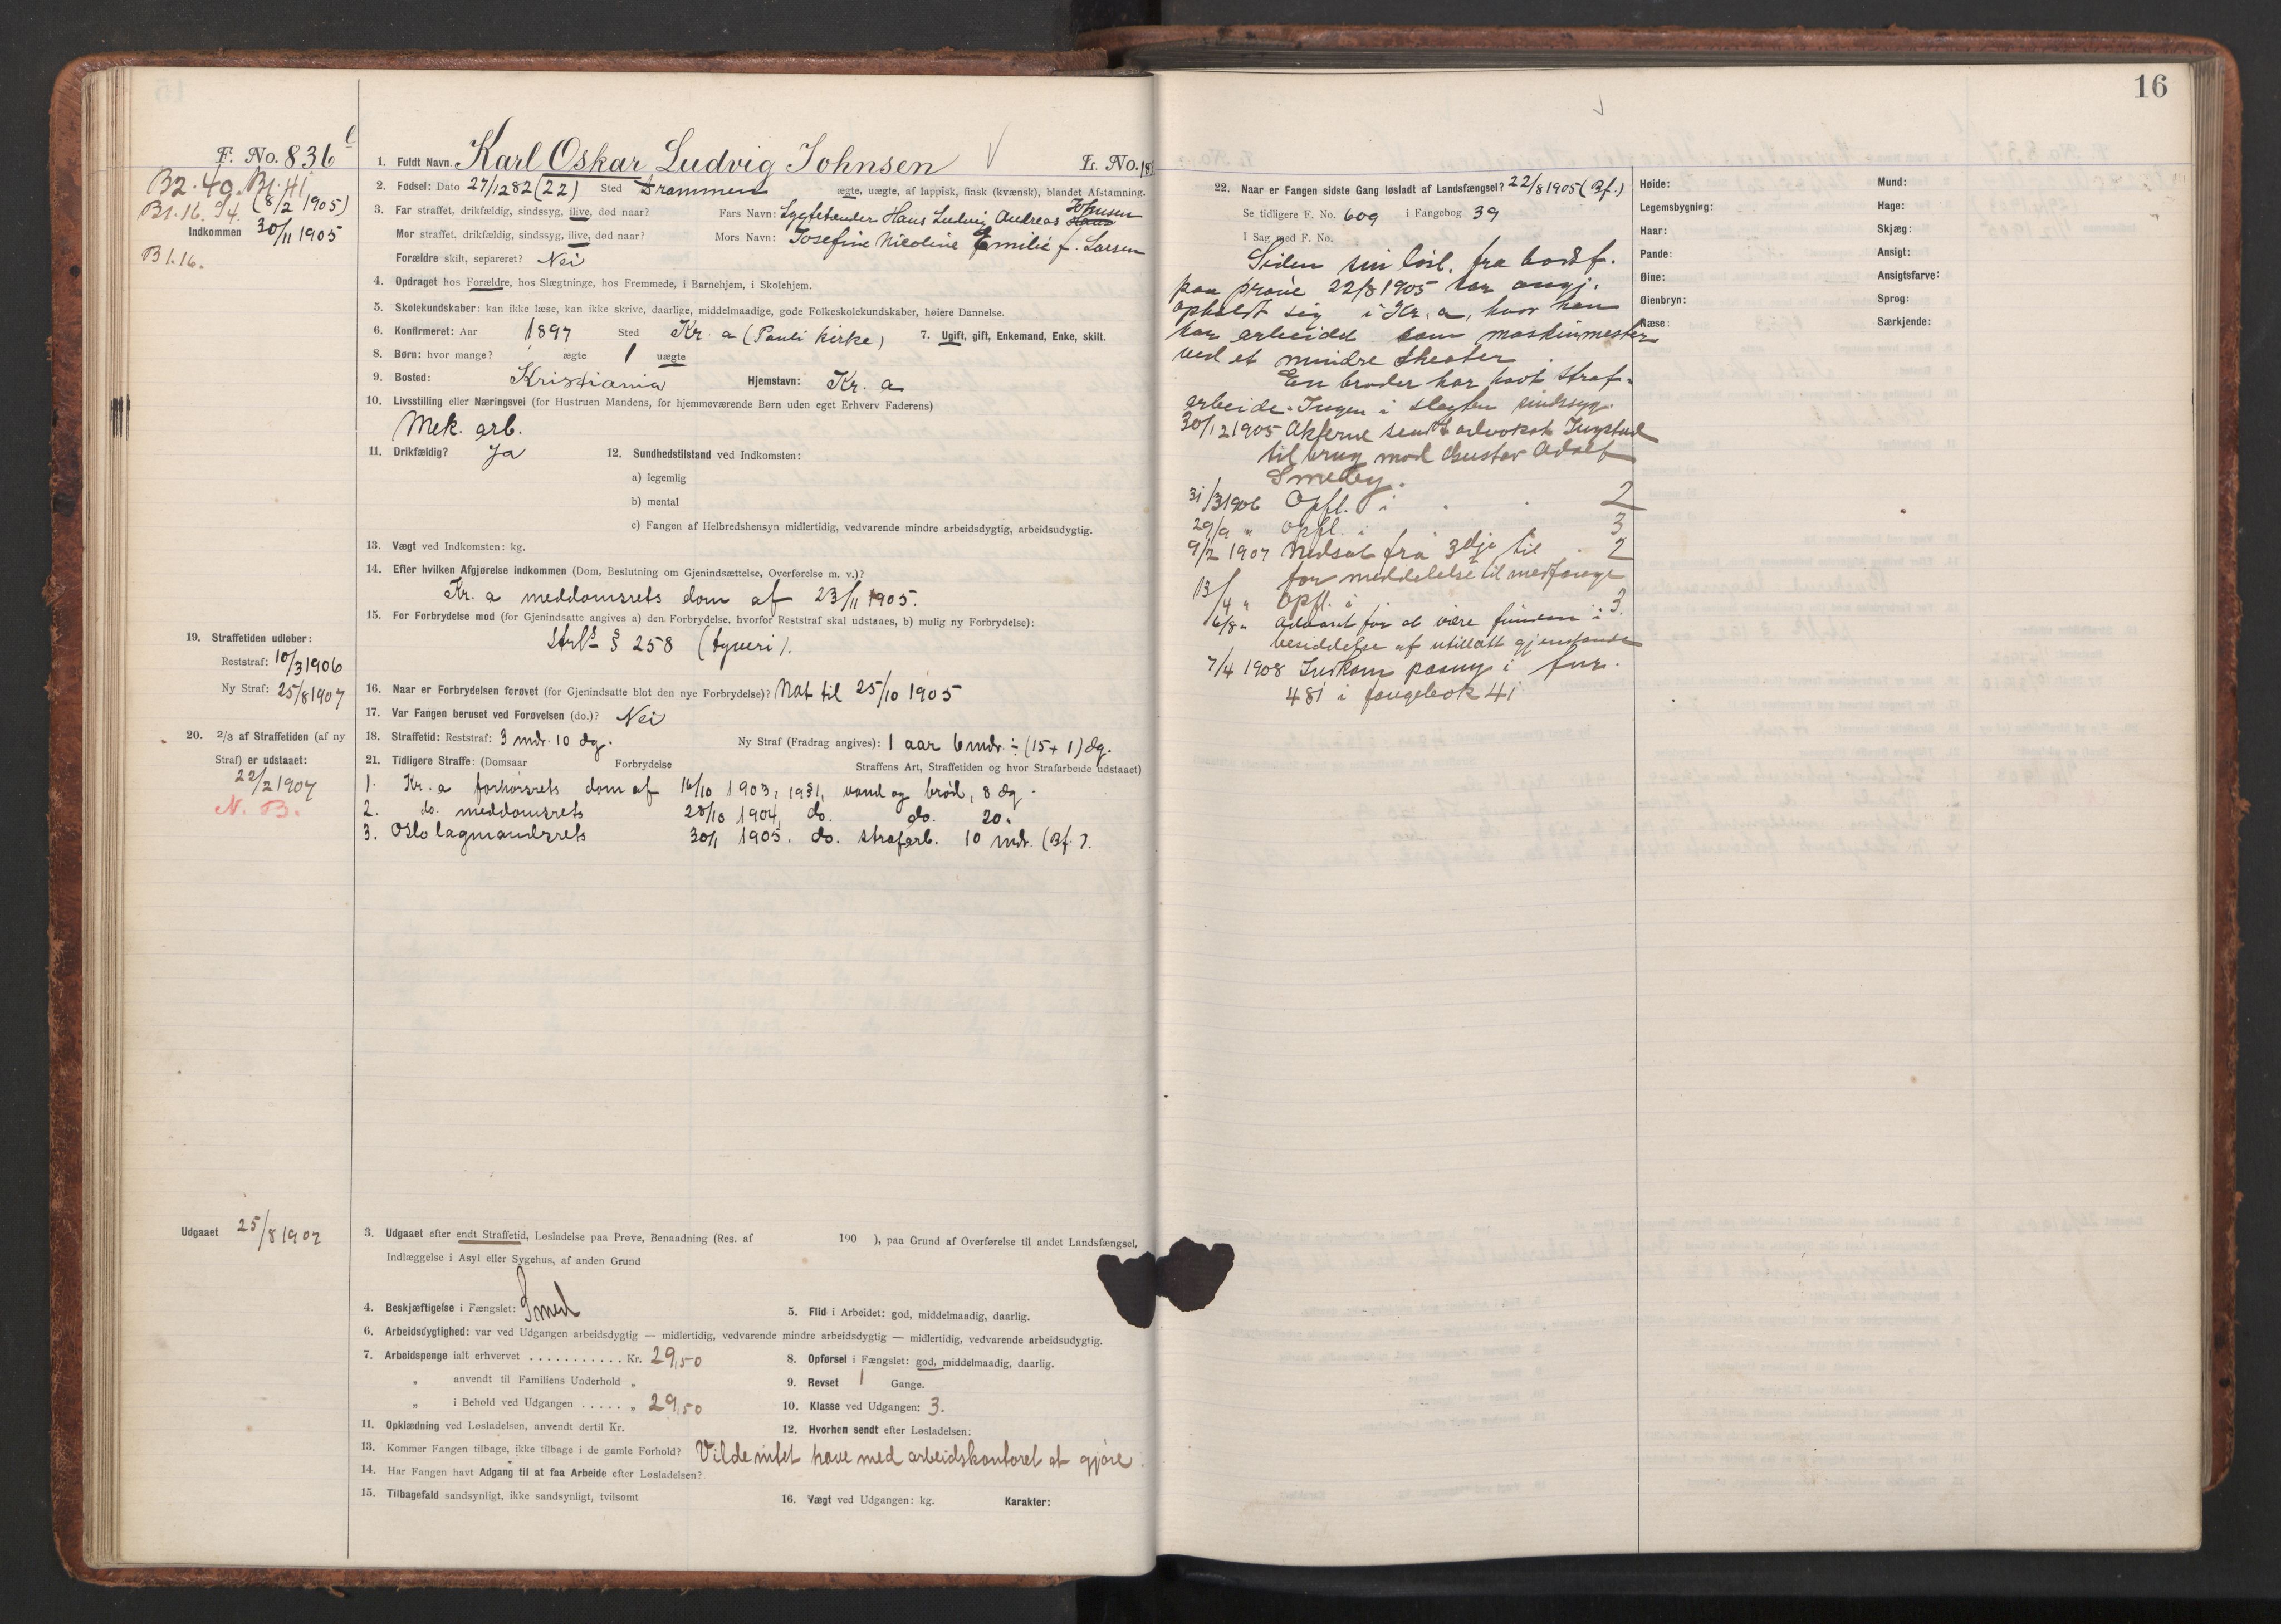 F. No. 836
B2. 40. Bl. 41.
Bl. 16. 94. (8/2 1905)
Indkommen 30/11 1905
Bl. 16.
1. Fuldt Navn. Karl Oskar Ludvig Johnsen L. No.
2. Fødsel: Dato 27/12 82 (22) Sted Drammen ægte, uægte, af lappisk, finsk (kvænsk), blandet Afstamning.
3. Far straffet, drikfældig, sindssyg, ilive, død naar? Fars Navn: Lygtetænder Hans Ludvig Andreas Johnsen
Mor straffet, drikfældig, sindssyg, ilive, død naar? Mors Navn: Josefine Nicoline Emilie f. Larsen
Forældre skilt, separeret? Nei
4. Opdraget hos Forældre, hos Slægtninge, hos Fremmede, i Barnehjem, i Skolehjem.
5. Skolekundskaber: kan ikke læse, kan ikke skrive, daarlige, middelmaadige, gode Folkeskolekundskaber, høiere Dannelse.
6. Konfirmeret: Aar 1897 Sted Kr. a (Pauli kirke) 7. Ugift, gift, Enkemand, Enke, skilt.
8. Børn: hvor mange? ægte 1 uægte
9. Bosted: Kristiania Hjemstavn: Kr. a
10. Livsstilling eller Næringsvei (for Hustruen Mandens, for hjemmeværende Børn uden eget Erhverv Faderens)
Mek. arb.
11. Drikfældig? Ja 12. Sundhedstilstand ved Indkomsten:
a) legemlig
b) mental
c) Fangen af Helbredshensyn midlertidig, vedvarende mindre arbeidsdygtig, arbeidsudygtig.
13. Vægt ved Indkomsten: kg.
14. Efter hvilken Afgjørelse indkommen (Dom, Beslutning om Gjenindsættelse, Overførelse m. v.)?
Kr. a meddomsrets dom af 23/11 1905.
15. For Forbrydelse mod (for Gjenindsatte angives a) den Forbrydelse, hvorfor Reststraf skal udstaaes, b) mulig ny Forbrydelse):
Strl. § 258 (tyveri).
19. Straffetiden udløber:
Reststraf: 10/3 1906
Ny Straf: 25/8 1907
16. Naar er Forbrydelsen forøvet (for Gjenindsatte blot den nye Forbrydelse)? Nat til 25/10 1905
17. Var Fangen beruset ved Forøvelsen (do.)? Nei
20. 2/3 af Straffetiden (af ny
Straf) er udstaaet:
22/2 1907
N. B.
18. Straffetid: Reststraf: 3 mdr. 10 dg. Ny Straf (Fradrag angives): 1 aar 6 mdr. ÷ (15 + 1) dg.
21. Tidligere Straffe: (Domsaar Forbrydelse Straffens Art, Straffetiden og hvor Strafarbeide udstaaet)
1. Kr. a forhørsrets dom af 16/10 1903, vand og brød, 8 dg.
2. do. meddomsrets 28/10 1904, do. do. 20.
3. Oslo lagmandsrets 30/1 1905. do. strafarb. 10 mdr. (Bf.).
Udgaaet 25/8 1907
3. Udgaaet efter endt Straffetid, Løsladelse paa Prøve, Benaadning (Res. af 190 ), paa Grund af Overførelse til andet Landsfængsel,
Indlæggelse i Asyl eller Sygehus, af anden Grund
4. Beskjæftigelse i Fængslet: Smed 5. Flid i Arbeidet: god, middelmaadig, daarlig.
6. Arbeidsdygtighed: var ved Udgangen arbeidsdygtig — midlertidig, vedvarende mindre arbeidsdygtig — midlertidig, vedvarende arbeidsudygtig.
7. Arbeidspenge ialt erhvervet ........... Kr. 29,50 8. Opførsel i Fængslet: god, middelmaadig, daarlig.
„ anvendt til Familiens Underhold „ 9. Revset 1 Gange.
„ i Behold ved Udgangen ..... „ 29,50 10. Klasse ved Udgangen: 3.
11. Opklædning ved Løsladelsen, anvendt dertil Kr. 12. Hvorhen sendt efter Løsladelsen:
13. Kommer Fangen tilbage, ikke tilbage i de gamle Forhold? Vilde intet have med arbeidskontoret at gjøre.
14. Har Fangen havt Adgang til at faa Arbeide efter Løsladelsen?
15. Tilbagefald sandsynligt, ikke sandsynligt, tvilsomt 16. Vægt ved Udgangen: kg. Karakter:
16
22. Naar er Fangen sidste Gang løsladt af Landsfængsel? 22/8 1905 (Bf.)
Se tidligere F. No. 609 i Fangebog 39
I Sag med F. No.
Siden sin løsl. fra bodsf.
paa prøve 22/8 1905 har angj.
opholdt sig i Kr. a, hvor han
har arbeidet som maskinmester
ved et mindre theater.
En broder har havt straf-
arbeide. Ingen i slegten sindssyg.
30/12 1905 Akterne sendt advokat Ingstad
til brug mod Gustav Adolf
Smeby.
31/3 1906 Opfl. i 2
29/9 „ Opfl. i 3
9/2 1907 Nedsat fra 3dje til 2
for meddelelse til medfange
13/4 „ Opfl. i 3.
6/8 „ Advaret for at være funden i
besiddelse af utilladt gjenstande
7/4 1908 Indkom paany i fnr.
481 i fangebok 41
Høide:
Legemsbygning:
Haar:
Pande:
Øine:
Øienbryn:
Næse:
Mund:
Hage:
Skjæg:
Ansigt:
Ansigtsfarve:
Sprog:
Særkjende: